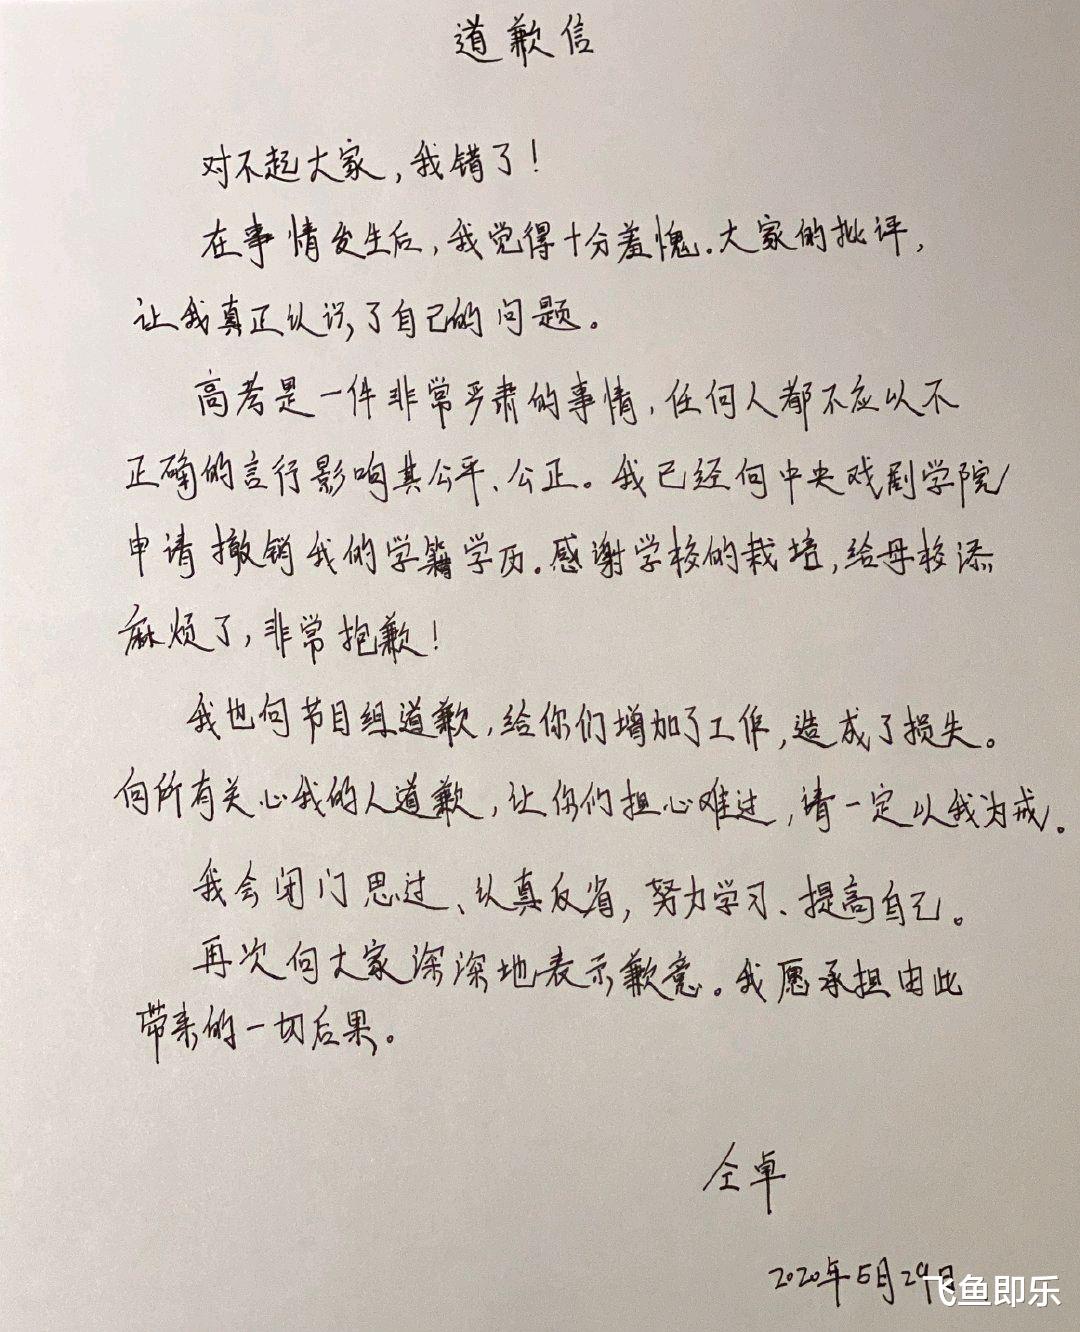 道歉信
对不起大家，我错了！
在事情发生后，我觉得十分羞愧．大家的批评，
让我真正认识了自己的问题。
高考是一件非常严肃的事情，任何人都不应以不
正确的言行影响其公平、公正。我已经向中央戏剧学院
申请撤销我的学籍学历．感谢学校的栽培，给母校添
麻烦了，非常抱歉！
我也向节目组道歉，给你们增加了工作，造成了损失。
向所有关心我的人道歉，让你们担心难过，请一定以我为戒。
我会闭门思过、认真反省，努力学习、提高自己。
再次向大家深深地表示歉意。我愿承担由此
带来的一切后果。
仝卓
2020年5月29日
飞鱼即乐